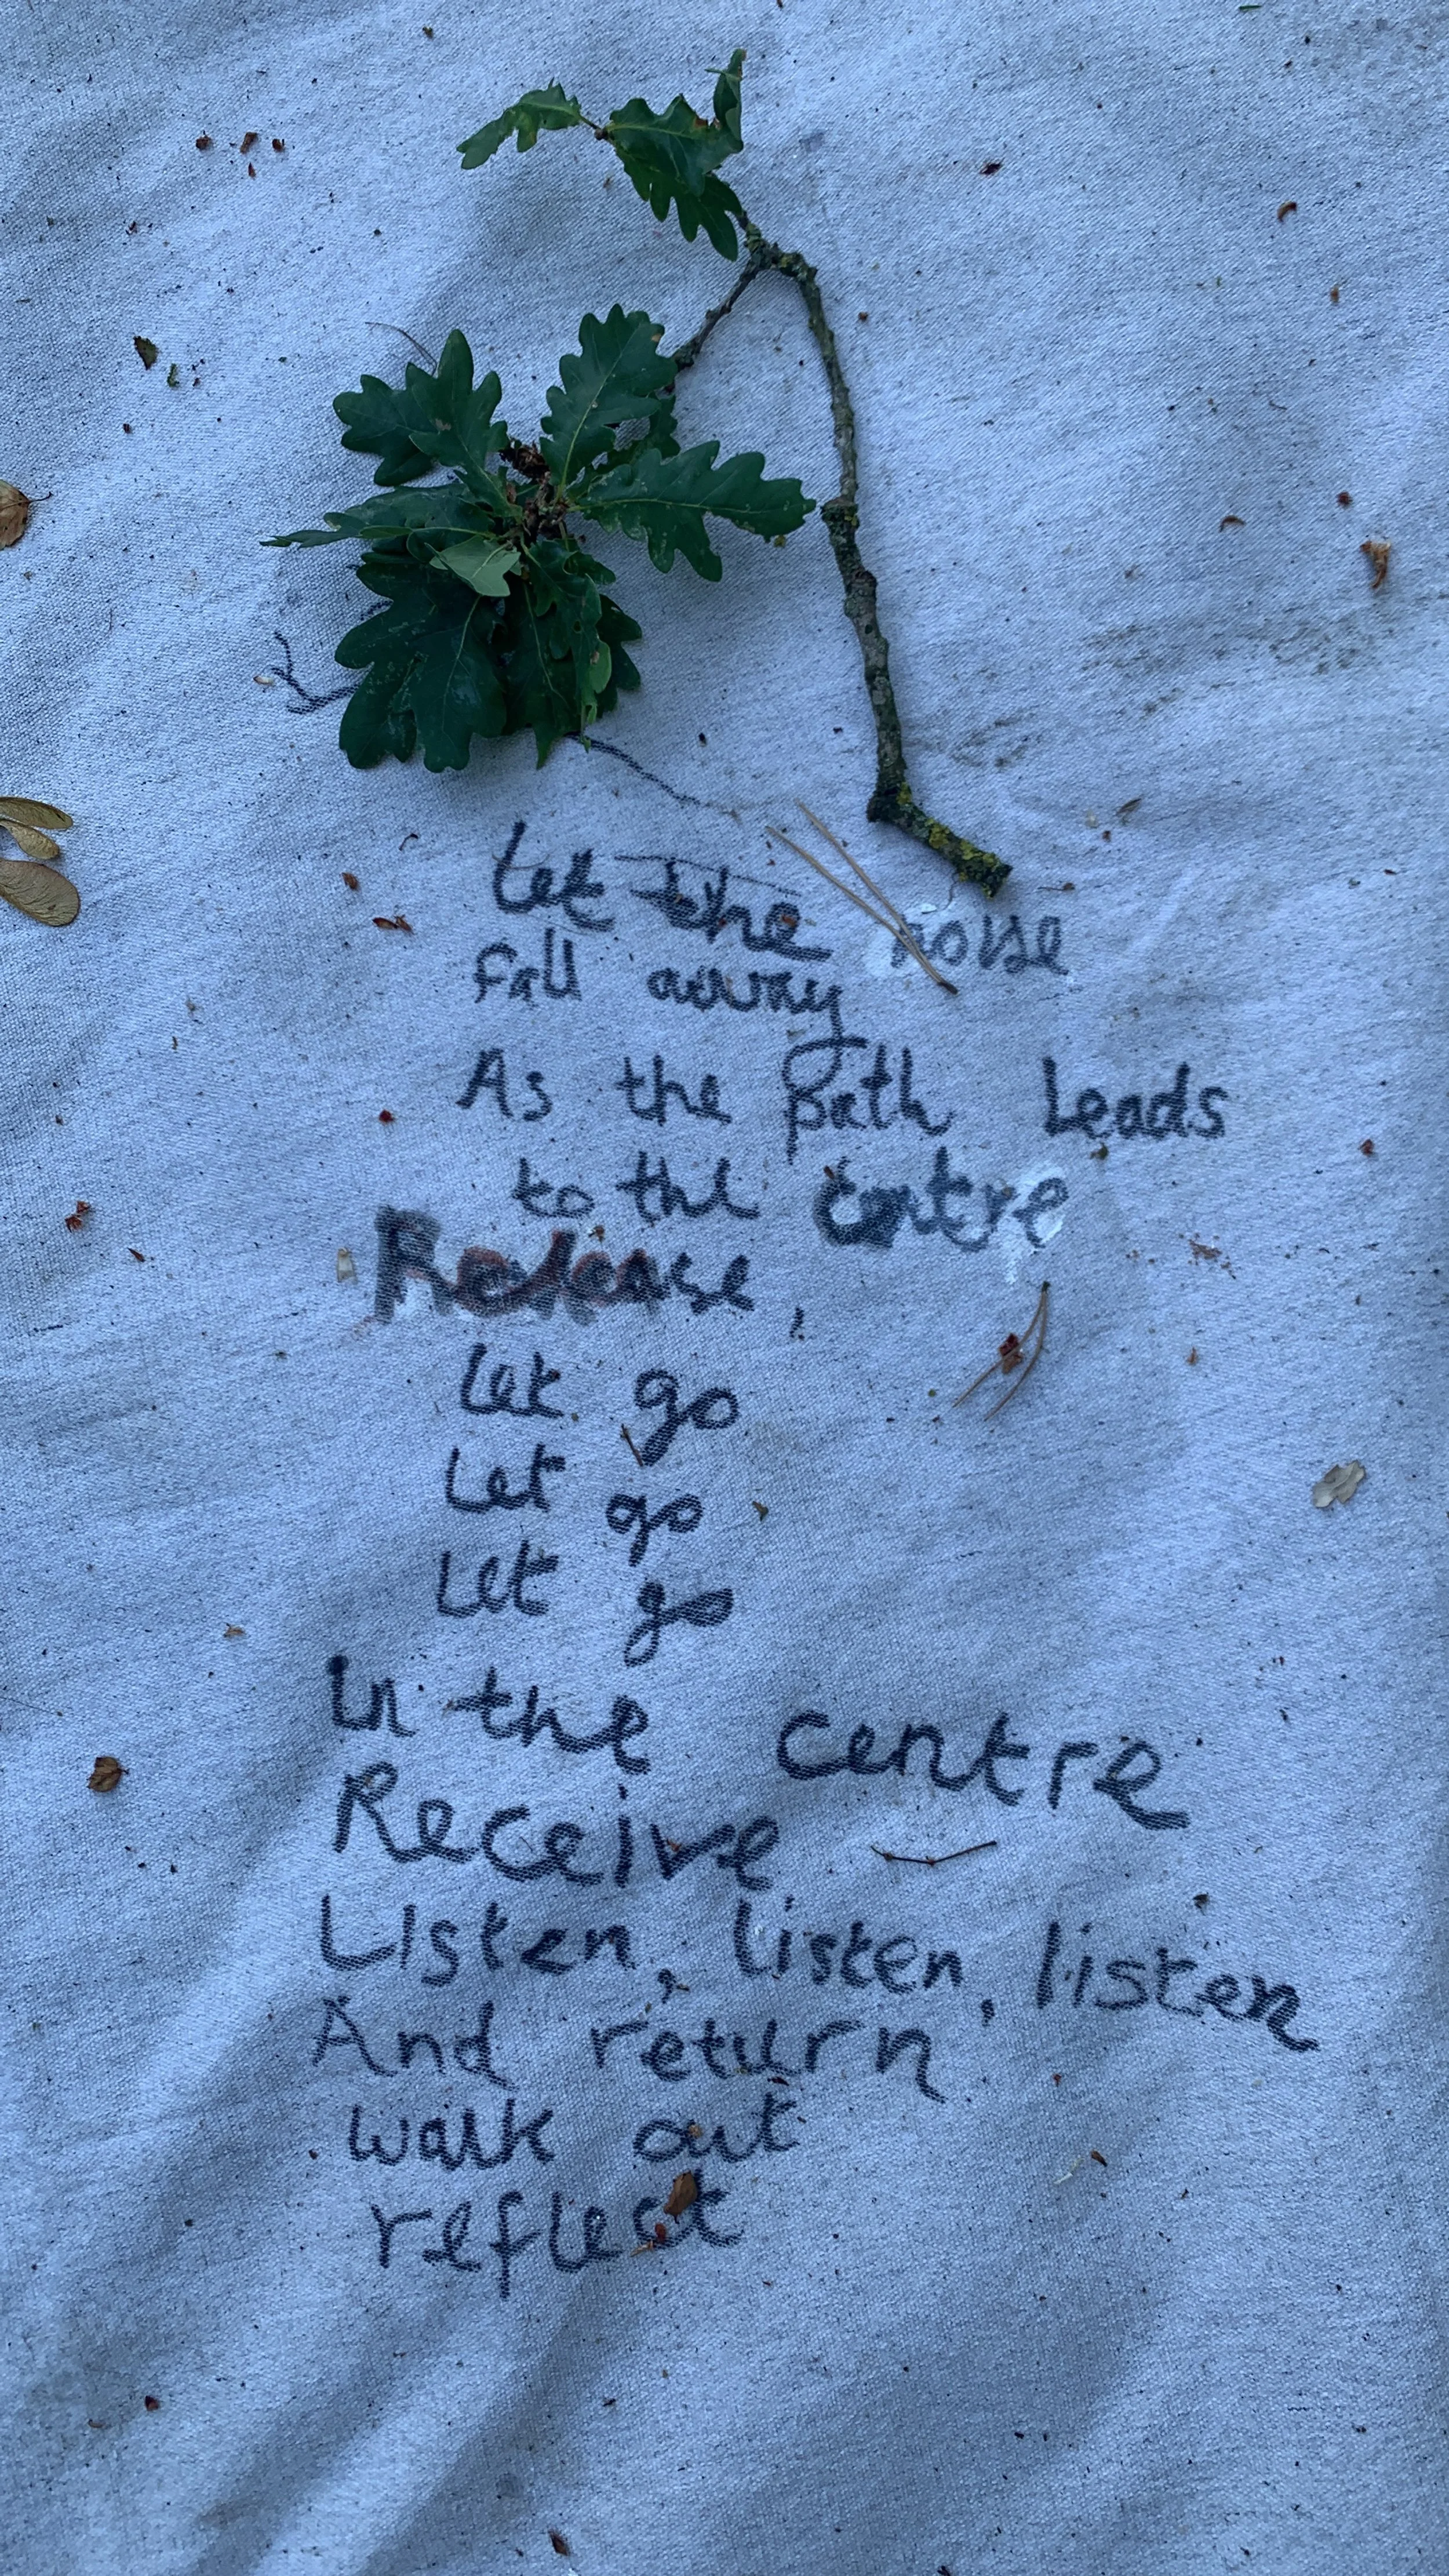 Let the noise
fall away
As the Path Leads
to the centre
Release,
Let go
Let go
Let go
In the centre
Receive
Listen, listen, listen
And return
walk out
reflect